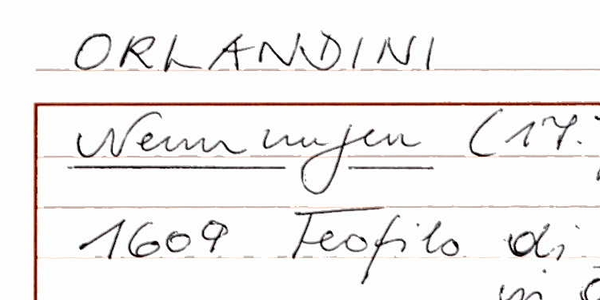 ORLANDINI
Nennungen (17.
1609 Teofilo di
in